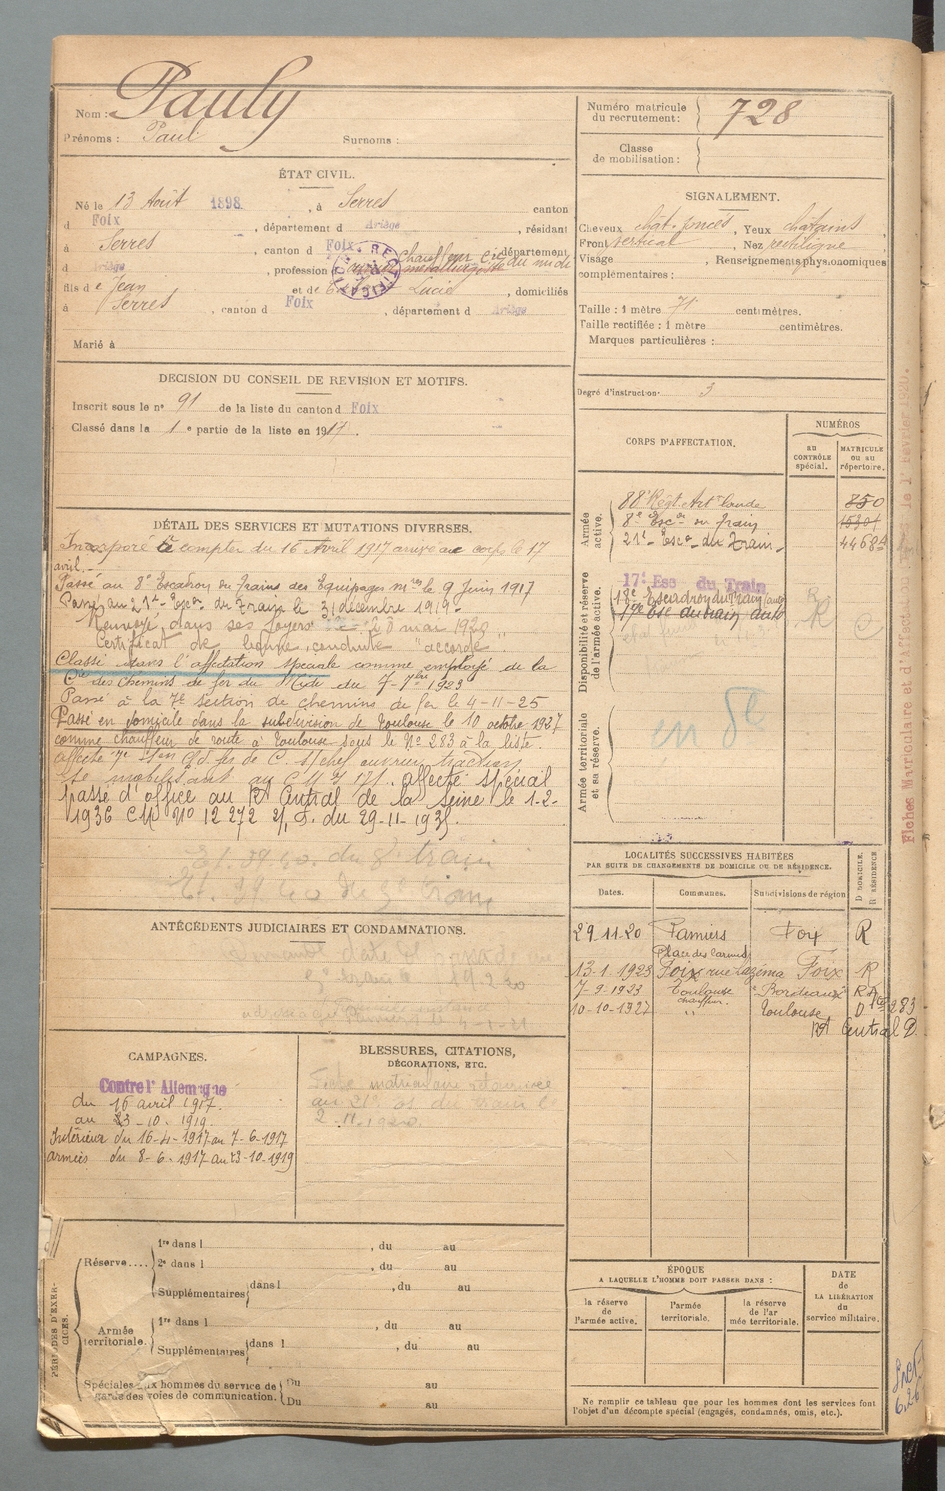 Nom : Pauly
Prénoms : Paul Surnoms :
ÉTAT CIVIL.
Né le 13 Août 1898, à Serres canton
d Foix, département d Ariège, résidant
à Serres, canton d Foix, département
d Ariège, profession Chauffeur Cie du midi
RECTIFICATION
fils de Jean et de Lucie, domiciliés
à Serres, canton d Foix, département d Ariège
Marié à
DECISION DU CONSEIL DE REVISION ET MOTIFS.
Inscrit sous le n° 91 de la liste du canton d Foix
Classé dans la 1e partie de la liste en 1917.
DÉTAIL DES SERVICES ET MUTATIONS DIVERSES.
Incorporé à compter du 16 Avril 1917 arrivé au corps le 17
avril.
Passé au 8e Escadron du Train des Equipages mres le 9 Juin 1917
Passé au 21e Escon du Train le 31 décembre 1919
Renvoyé dans ses foyers le 8 mai 1920
Certificat de bonne conduite accordé
Classé dans l'affectation spéciale comme employé de la
Cie des Chemins de fer du Midi du 7-7bre 1923
Passé à la 7e section de chemins de fer le 4-11-25
Passé en domicile dans la subdivision de Toulouse le 10 octobre 1927
comme chauffeur de route à Toulouse sous le N° 283 à la liste.
affecté spécial
passé d'office au Rt Central de la Seine le 1-2-
1936 CM N° 12272 du 29-11-1935.
ANTÉCÉDENTS JUDICIAIRES ET CONDAMNATIONS.
CAMPAGNES.
Contre l'Allemagne
du 16 avril 1917.
au 23-10-1919.
Intérieur du 16-4-1917 au 7-6-1917
armées du 8-6-1917 au 23-10-1919
BLESSURES, CITATIONS,
DÉCORATIONS, ETC.
Fiche matriculaire retournée
au 21e es. du train le
2-11-1920.
PÉRIODES D'EXERCICES.
Réserve....
1re dans l , du au
2e dans l , du au
Supplémentaires dans l , du au
Armée territoriale.
1re dans l , du au
Supplémentaires dans l , du au
Spéciales aux hommes du service de
garde des voies de communication.
Du au
Du au
Numéro matricule
du recrutement : 728
Classe
de mobilisation :
SIGNALEMENT.
Cheveux chat. foncés, Yeux chatains,
Front vertical, Nez rectiligne
Visage , Renseignements physionomiques
complémentaires :
Taille : 1 mètre 71 centimètres.
Taille rectifiée : 1 mètre centimètres.
Marques particulières :
Degré d'instruction : 3
CORPS D'AFFECTATION.
NUMÉROS
au
CONTRÔLE
spécial.
MATRICULE
ou au
répertoire.
Armée active.
88e Régt Art lourde 850
8e Escon du Train
21e Escon du Train 4468
Disponibilité et réserve de l'armée active.
17e Ess du Train
18e Escadron du Train (auto)
17e Esc du train auto
R
Armée territoriale et sa réserve.
LOCALITÉS SUCCESSIVES HABITÉES
PAR SUITE DE CHANGEMENTS DE DOMICILE OU DE RÉSIDENCE.
Dates. Communes. Subdivisions de région D DOMICILE. R RÉSIDENCE
29.11.20 Pamiers Foix R
Place des Carmes
13-1-1923 Foix rue Lazéma Foix R
7-9-1923 Toulouse Bordeaux
chauffeur.
10-10-1927 " Toulouse D 283
Rt Central D.
ÉPOQUE
A LAQUELLE L'HOMME DOIT PASSER DANS :
la réserve
de l'armée active.
l'armée
territoriale.
la réserve
de l'ar
mée territoriale.
DATE
de
LA LIBÉRATION
du
service militaire.
Ne remplir ce tableau que pour les hommes dont les services font
l'objet d'un décompte spécial (engagés, condamnés, omis, etc.).
Fiches Matriculaire et d'Affectation le 1er Février 1920.